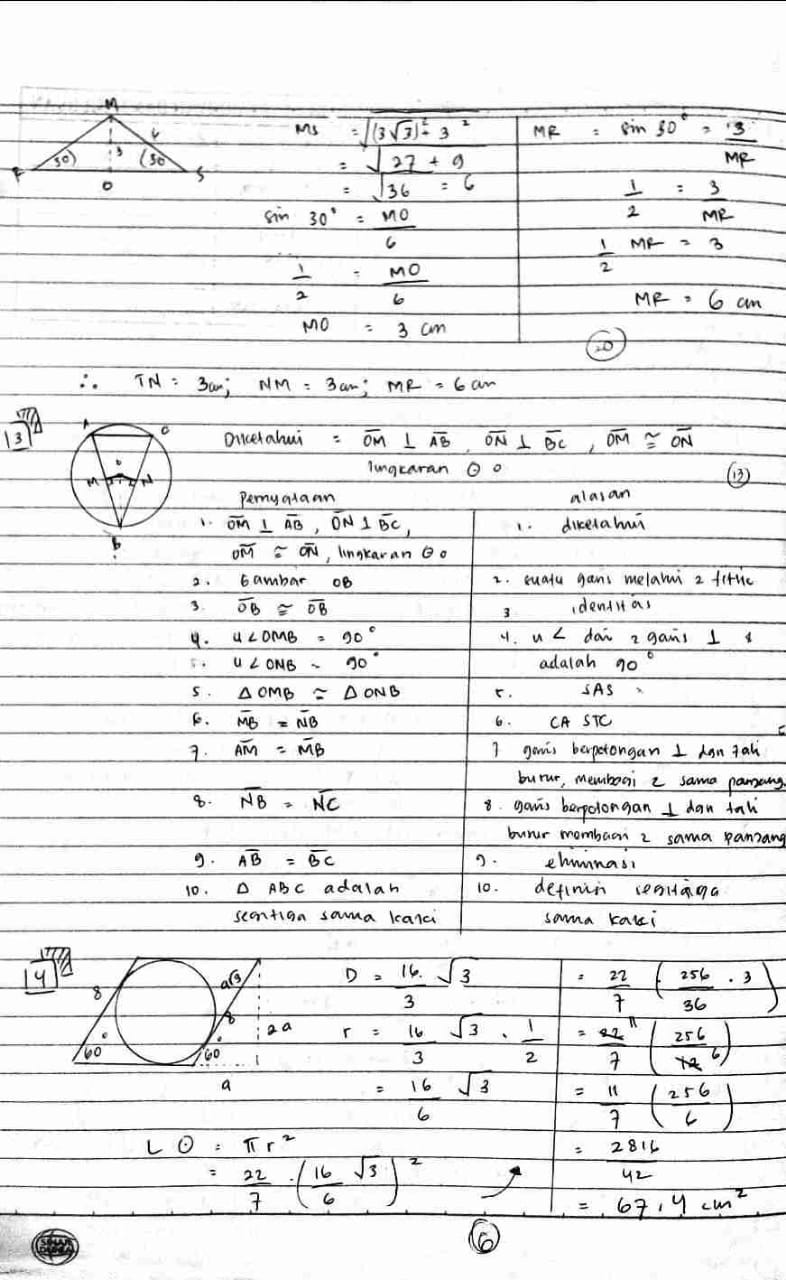 M
30) 3 (30 S
O
MS = √(3√3)² + 3²
= √27 + 9
= √36 = 6
sin 30° = MO/6
1/2 = MO/6
MO = 3 cm
MR = sin 30° = 3/MR
1/2 = 3/MR
1/2 MR = 3
MR = 6 cm
20
∴ TN = 3cm; NM = 3cm; MR = 6 cm
13
A C
M N
B
Diketahui = OM ⊥ AB, ON ⊥ BC, OM ≅ ON
lingkaran ⊙ O
13
Pernyataan alasan
1. OM ⊥ AB, ON ⊥ BC, 1. diketahui
OM ≅ ON, lingkaran ⊙ O
2. Gambar OB 2. suatu garis melalui 2 titik
3. OB ≅ OB 3 identitas
4. u∠OMB = 90° 4. u ∠ dari 2 garis ⊥
u∠ONB = 90° adalah 90°
5. △OMB ≅ △ONB 5. SAS
6. MB = NB 6. CASTC
7. AM = MB 7 garis berpotongan ⊥ dan tali
busur, membagi 2 sama panjang.
8. NB = NC 8. garis berpotongan ⊥ dan tali
busur membagi 2 sama panjang
9. AB = BC 9. eliminasi
10. △ ABC adalah 10. definisi segitiga
segitiga sama kaki sama kaki
14
8 a√3
8 2a
60° 60°
a
D = 16/3 √3
r = 16/3 √3 . 1/2
= 16/6 √3
L ⊙ = πr²
= 22/7 . (16/6 √3)²
= 22/7 (256/36 . 3)
= 22 11/7 (256/12 6)
= 11/7 (256/6)
= 2816/42
= 67,4 cm²
6
SINAR
DUNIA